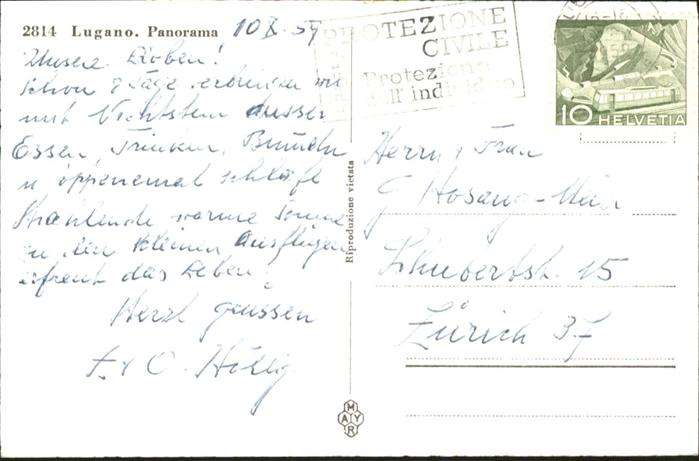 2814 Lugano. Panorama
10 X. 59
PROTEZIONE
CIVILE
Protezione
dell'individuo
10 HELVETIA
Unsere Lieben!
Schon 8 Tage verbringen wir
mit Nichtstun ausser
Essen, Trinken, Bummeln
u öppenemal Schlaf
Strahlende warme Sonne
zu den kleinen Ausflügen
erfreut das Leben!
Herzl grüssen
Riproduzione vietata
Herrn & Frau
G Hosang-Meier
Schubertstr. 15
Zürich 37
MAYR